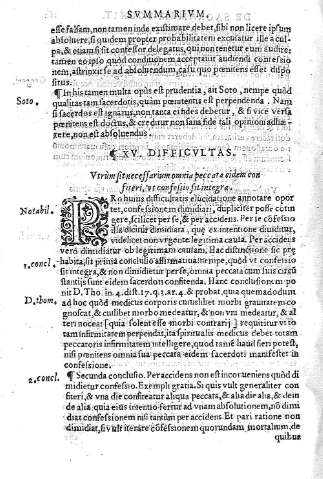 SVMMARIVM.
esse falsam, non tamen inde existimare debet, sibi non licere ipsum
absoluere, si quidem propter probabilitatem excusatur ille à cul
pa, & etiam si sit confessor delegatus, qui non tenetur eum audire
tamen eo ipso quòd conditionem acceptauit audiendi confessio
nem, astrinxit se ad absoluendum, casu quo pœnitens esset dispo
situs.
¶ In his tamen multa opus est prudentia, ait Soto, nempe quòd
qualitas tam sacerdotis, quàm pœnitentis est perpendenda. Nam
Soto.
si sacerdos est ignarus, non tanta ei fides debetur, & si vice versa
pœnitens est doctus, & creditur non sana fide tali opinioni adhę
rere, non est absoluendus.
¶ XV. DIFFICVLTAS.
Vtrùm sit necessarium omnia peccata eidem con
fiteri, vt confessio sit integra.
Notabil.
PRo huius difficultatis elucidatione annotare opor
tet, confessionem dimidiari, dupliciter posse con
tingere, scilicet per se, & per accidens. Per se confessio
dicitur dimidiata, quę ex intentione diuiditur,
videlicet non vrgente legitima causa. Per accidens
vero dimidiatur ob legitimam causam. Hac distinctione sic prę
1. concl.
habita, sit prima conclusio affirmatiua nempe, quòd vt confessio
sit integra, & non dimidietur per se, omnia peccata cum suis circū
stantijs sunt eidem sacerdoti confitenda. Hanc conclusionem po
D. Thom.
nit D. Tho. in 4. dist. 17. q. 3. ar. 4. & probat, quia quemadmodum
ad hoc quòd medicus corporis curet, licet morbi grauitatem co
gnoscat, & cuilibet morbo medeatur, & non vni medeatur, & al
teri noceat [quia solent esse morbi contrarij] requiritur vt to
tam infirmitatem perpendat, ita spiritualis medicus debet totam
peccatoris infirmitatem intelligere, quod tamē haud fieri potest,
nisi pœnitens omnia sua peccata eidem sacerdoti manifestet in
confessione.
2. concl.
¶ Secunda conclusio. Per accidens non est inconueniens quòd di
midietur confessio. Exempli gratia. Si quis vult generaliter con
fiteri, & vna die confiteatur aliqua peccata, & alia die alia, & dem
de alia quia eius intentio fertur ad vnam absolutionem, nō dimi
diat confessionem nisi tantùm per accidens. Et pari ratione non
dimidiat, si vult iterare confessionem quorundam mortalium, de
quibus